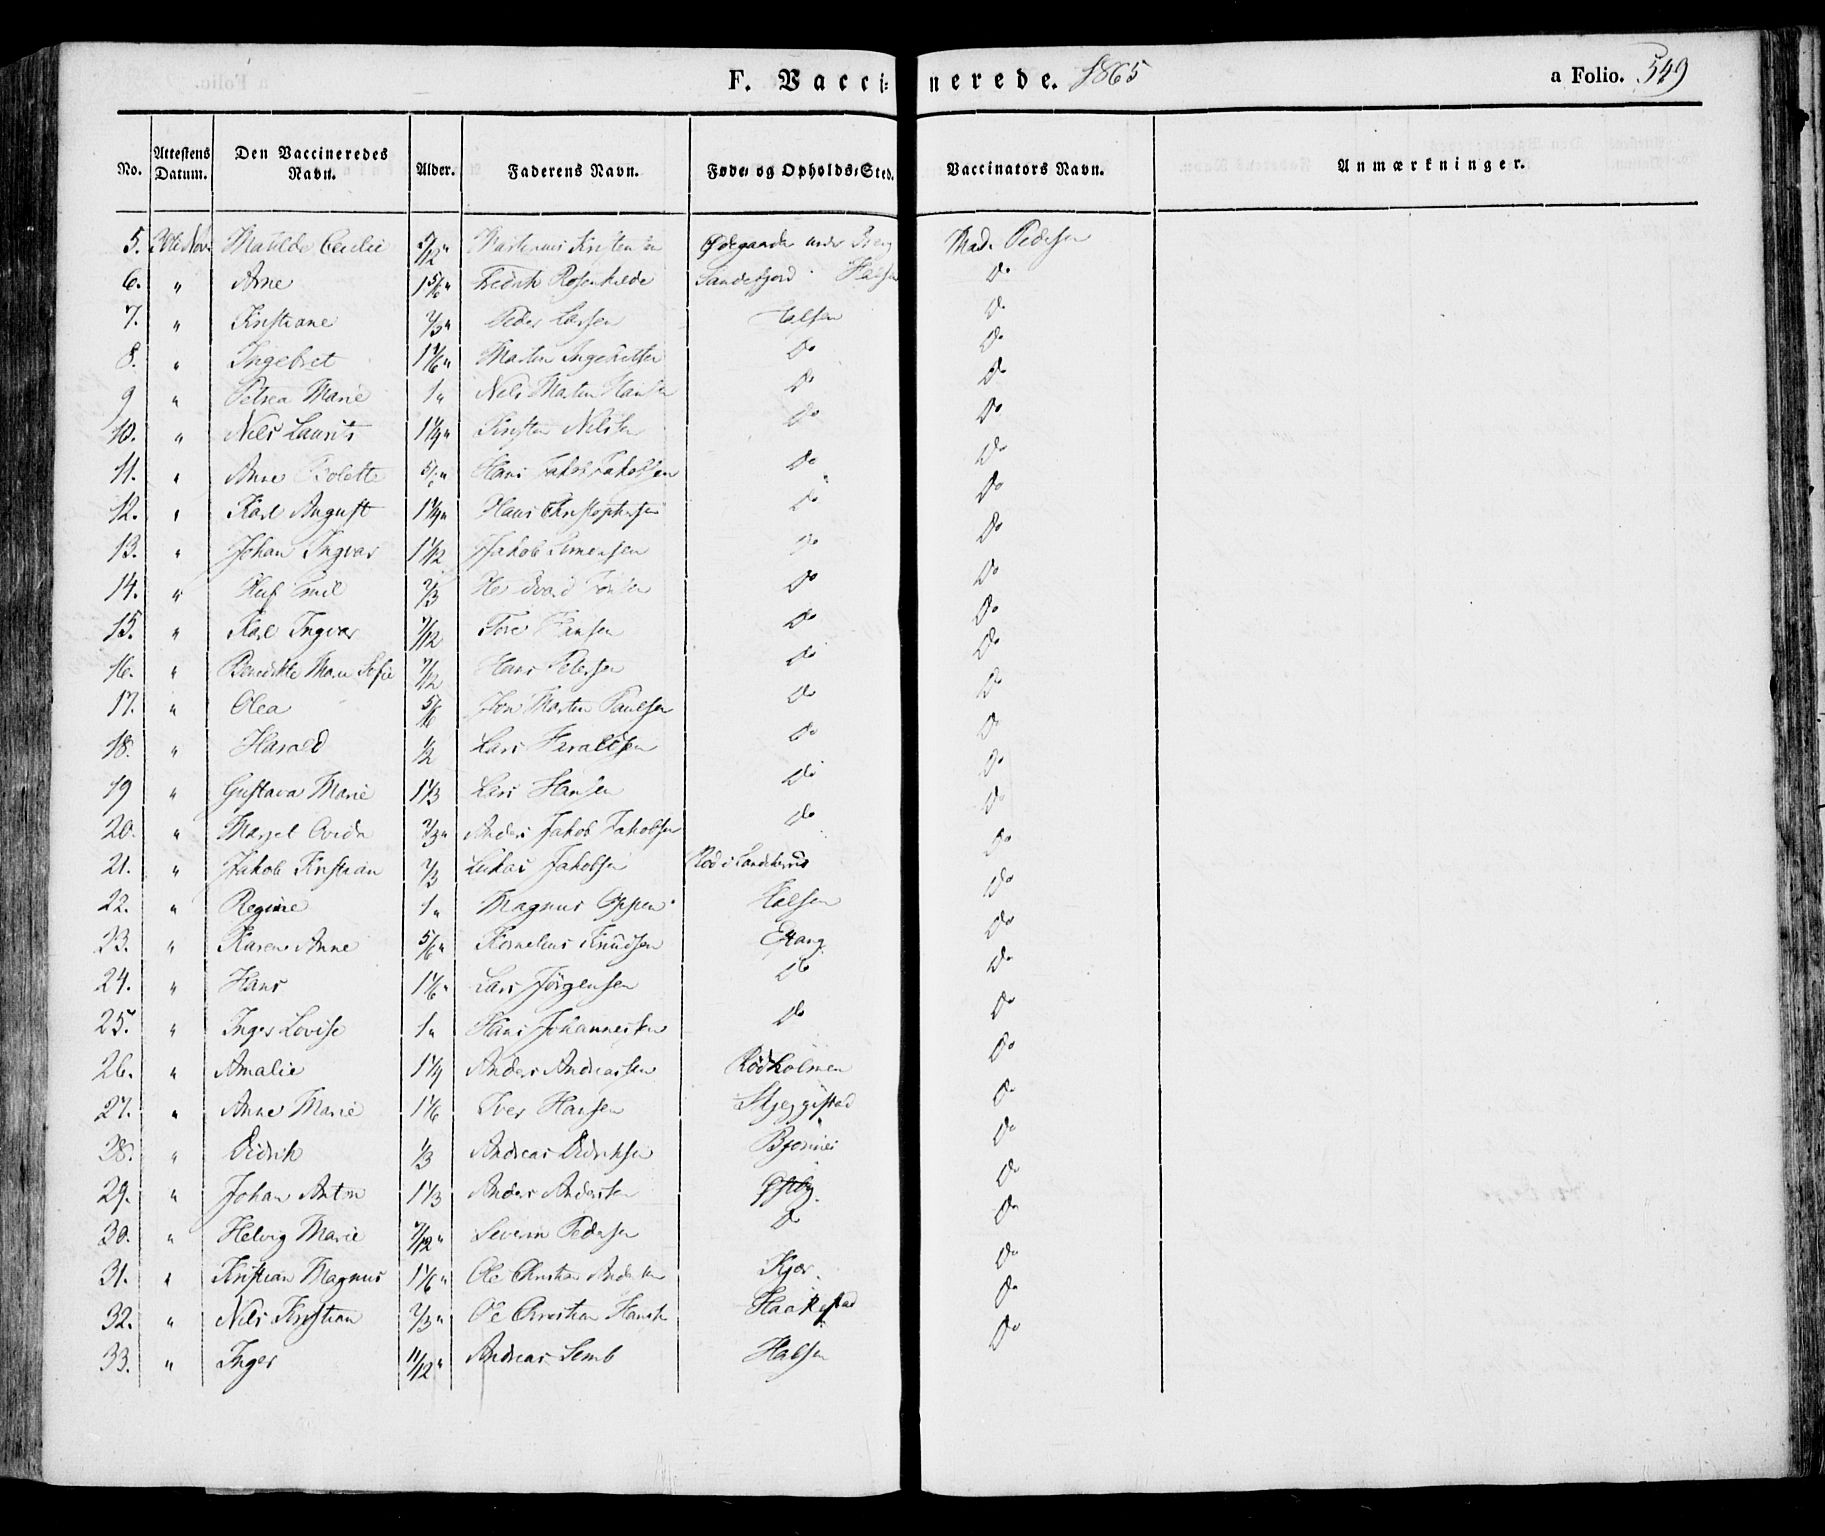 F. Vaccinerede. 1865 a Folio. 549
No. Attestens Datum. Den Vaccineredes Navn. Alder. Faderens Navn. Føde- og Opholds-Sted. Vaccinators Navn. Anmærkninger.
5. Nov. Matilde Cecilie 5/12 " Ødegaarden under Mad. Pedersen
6. " Arne 1 5/6 " Fredrik Rosenkilde Sandefjord Halsen Do
7. " Kristiane 2/3 " Peder Larsen Halsen Do
8. " Ingebret 1 1/6 " Martin Ingebretsen Do Do
9 " Petrea Marie 1 " Nels Martin Hansen Do Do
10. " Nils Laurits 1 1/4 " Kristen Nilsen Do Do
11. " Anne Bolette 5/6 " Hans Jakob Jakobsen Do Do
12. " Karl August 1 1/4 " Hans Christophersen Do Do
13. " Johan Ingvar 1 1/12 Jakob Simensen Do Do
14. " Emil 2/3 Do Do
15. " Karl Ingvar 7/12 Tore Hansen Do Do
16. " Benedikte Marie Sofie 7/12 Hans Petersen Do Do
17. " Olea 5/6 Jon Martin Paulsen Do Do
18. " Harald 1/2 Lars Haraldsen Do Do
19 " Gustava Marie 1 1/3 Lars Hansen Do Do
20. " Marget 2/3 " Anders Jakob Jakobsen Do Do
21. " Jakob Kristian 2/3 Lukas Jakobsen Rød i Sandeherred Do
22. " Regine 1 " Magnus Oppen Halsen Do
23. " Karen Anne 5/6 " Kornelius Knudsen Do
24. " Hans 1 1/6 " Lars Jörgensen Do Do
25. " Inger Lovise 1 " Hans Johannesen Do Do
26. " Amalie 1 1/4 Anders Andreassen Rødholmen Do
27. " Anne Marie 1 1/6 Iver Hansen Skjeggestad Do
28. " Didrik 1/3 Andreas Didriksen Bjørnnes Do
29. " Johan Anton 1 1/3 Anders Andersen Østby Do
30. " Helvig Marie 7/12 " Severin Pedersen Do Do
31. " Kristian Magnus 1 1/6 " Ole Christian Andersen Kjær Do
32. " Nils Kristian 2/3 " Ole Christian Hansen Haakestad Do
33. " Inger 11/12 " Andreas Semb Halsen Do